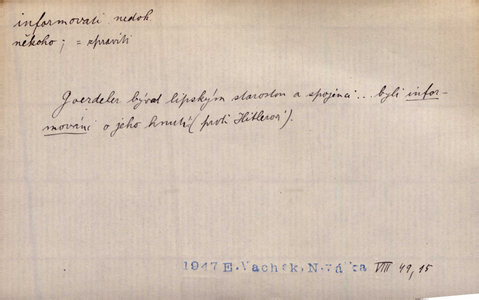 informovati nedok.
někoho; = zpraviti
Goerdeler býval lipským starostou a spojenci... byli infor-
mováni o jeho hnutí (proti Hitlerovi).
1947 E. Vachek, N. VIII 49, 15